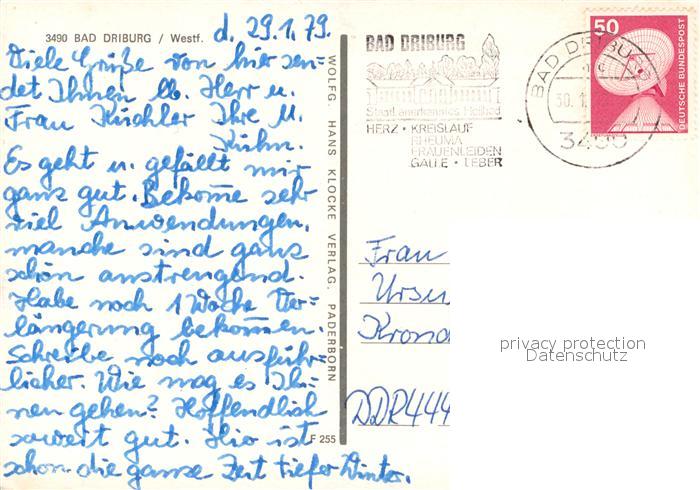 3490 BAD DRIBURG / Westf. d. 29.1.79.
Viele Grüße von hier sen=
det Ihnen lb. Herr u.
Frau Küchler Ihre M.
Kühn.
Es geht u. gefällt mir
ganz gut. Bekome sehr
viel Anwendungen,
manche sind ganz
schön anstrengend.
Habe noch 1 Woche Ver=
längerung bekomen.
Schreibe noch ausführ=
licher. Wie mag es Ih=
nen gehen? Hoffendlich
soweit gut. Hier ist
schon die ganze Zeit tiefer Winter.
WOLFG. HANS KLOCKE VERLAG, PADERBORN
F 255
BAD DRIBURG
Staatl. anerkanntes Heilbad
HERZ · KREISLAUF
RHEUMA
FRAUENLEIDEN
GALLE · LEBER
BAD DRIBURG
30.1.
3490
50
DEUTSCHE BUNDESPOST
Frau
Ursu
Krona
DDR444
privacy protection
Datenschutz